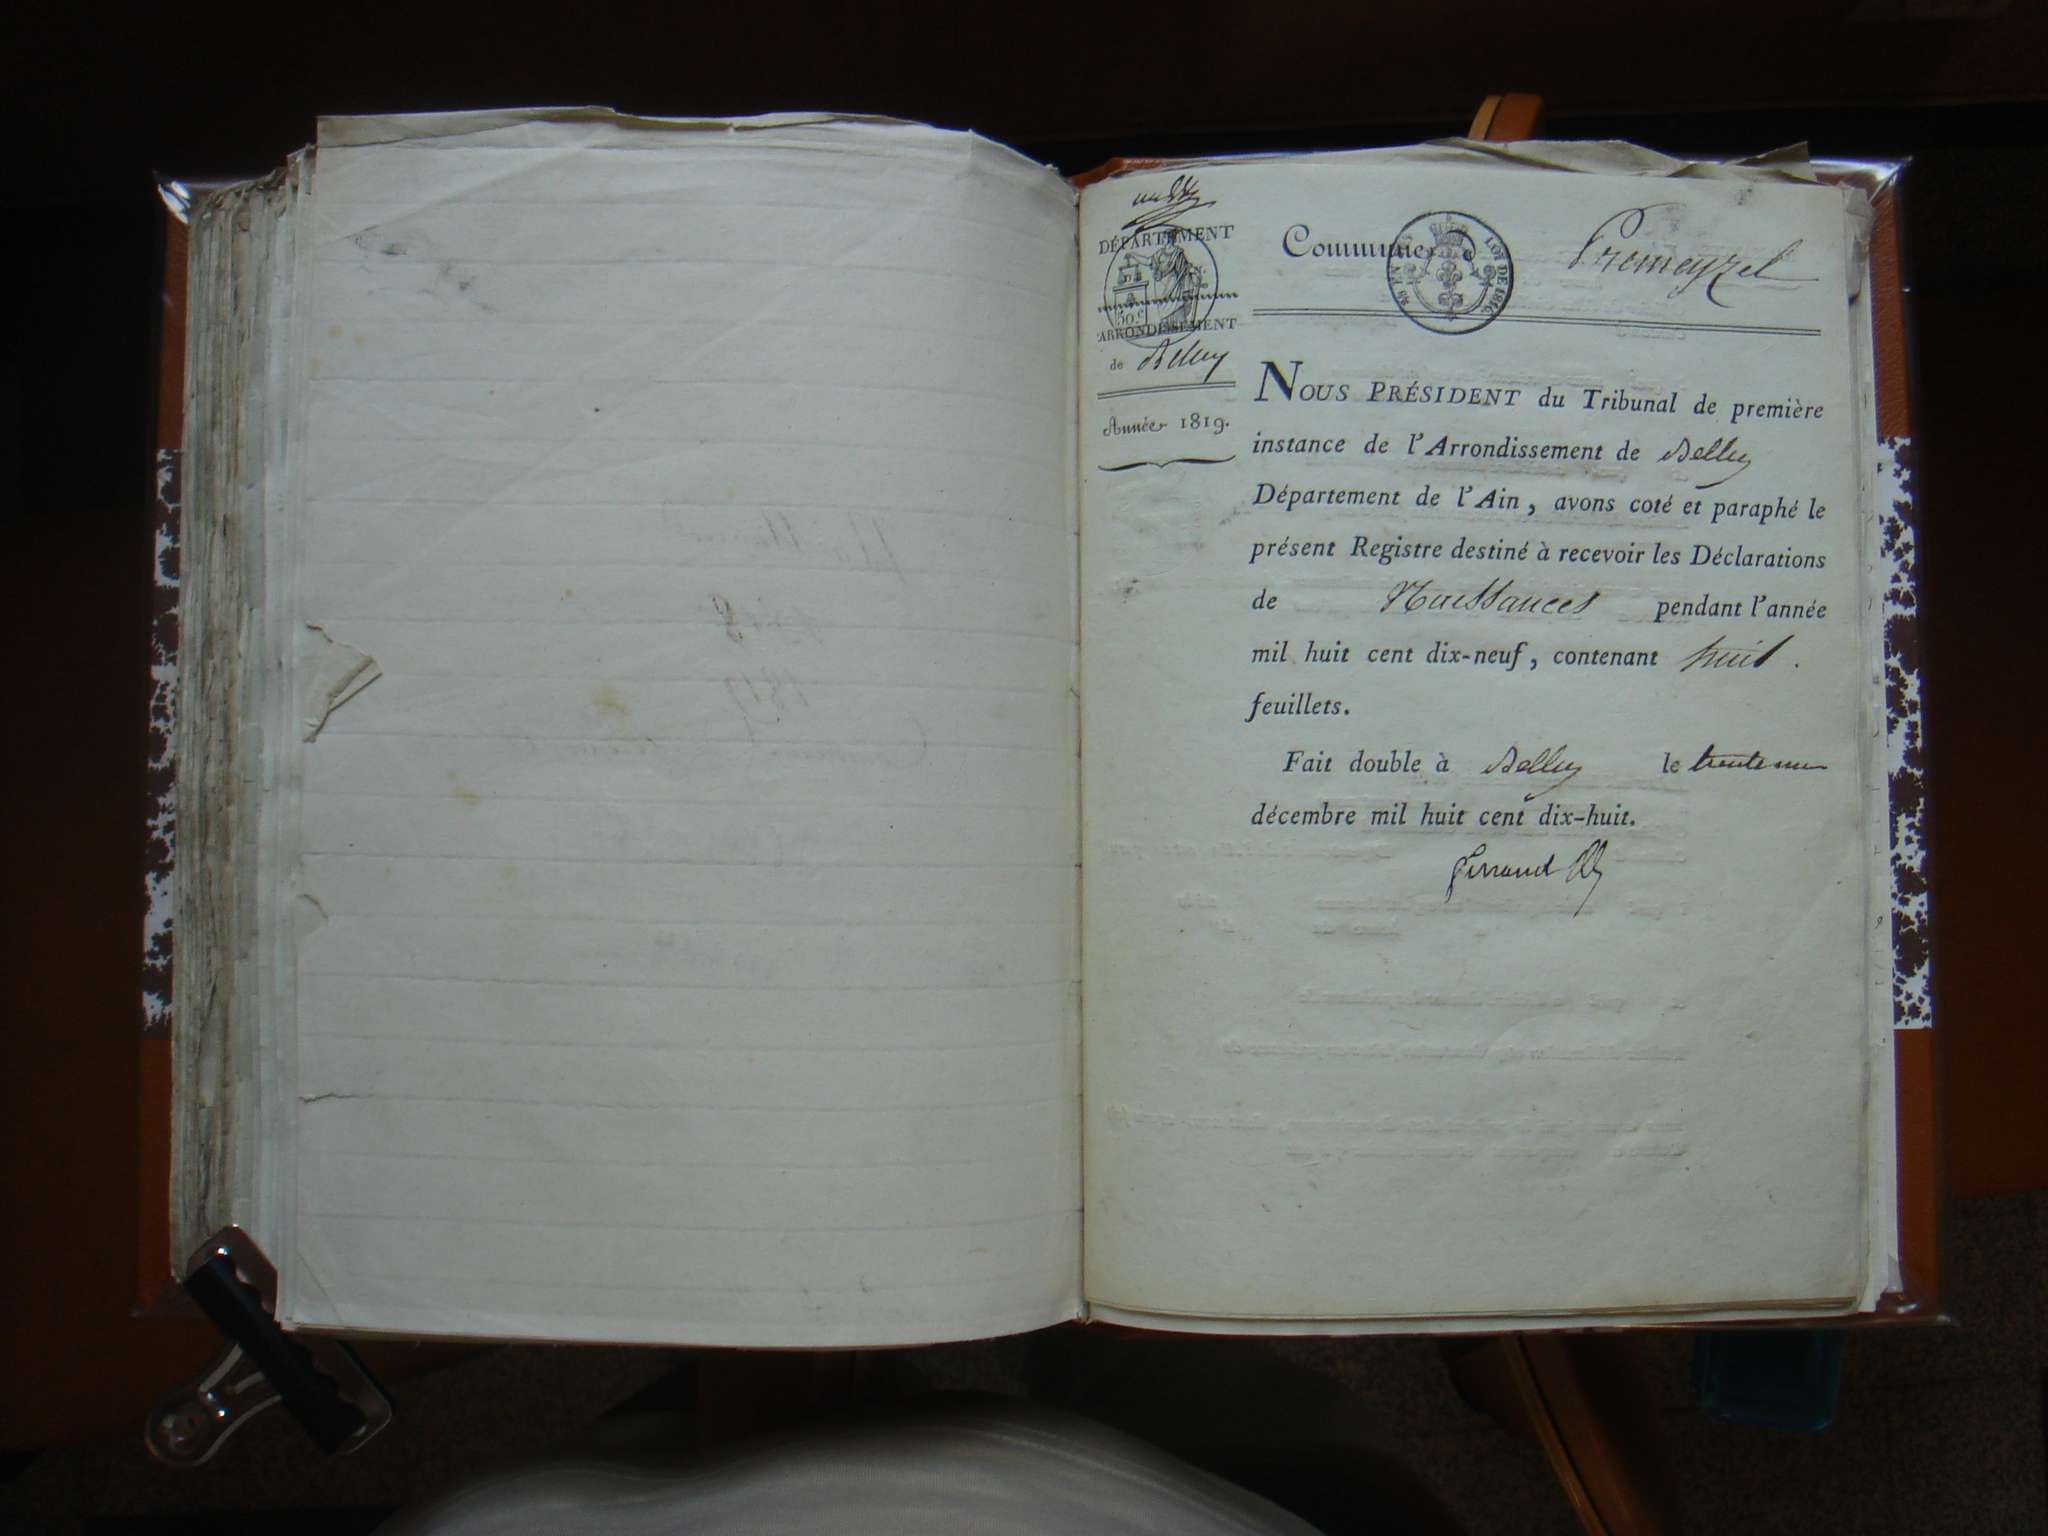 DÉPARTEMENT
50 c
ARRONDISSEMENT
de Belley
Année 1819.
Commune Premeyzel
LOI DE 1816
NOUS PRÉSIDENT du Tribunal de première
instance de l'Arrondissement de Belley
Département de l'Ain, avons coté et paraphé le
présent Registre destiné à recevoir les Déclarations
de Naissances pendant l'année
mil huit cent dix-neuf, contenant huit
feuillets.
Fait double à Belley le trente un
décembre mil huit cent dix-huit.